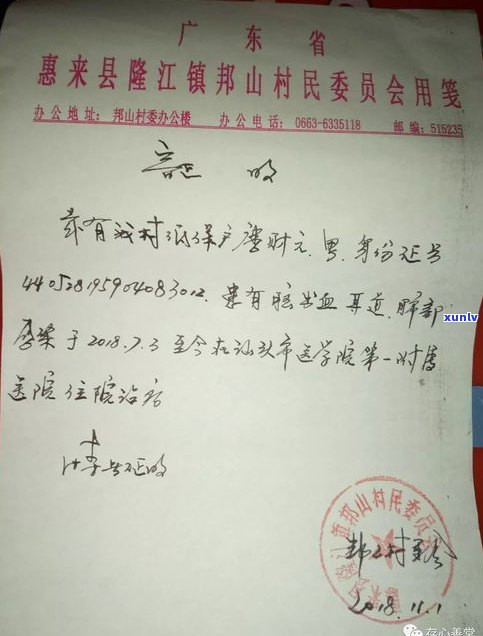 广东省
惠来县隆江镇邦山村民委员会用笺
办公地址：邦山村委办公楼 办公电话：0663-6335118 邮编：515235
证明
兹有我村低保户 财元，男，身份证号
440528195904083012，患有脑出血 肺部
感染于2018.7.3至今在汕头市医学院第一附属
医院住院治病
特此证明
隆江镇邦山村民委员会
邦山村委会
2018.11.1
xunlv
存心善堂